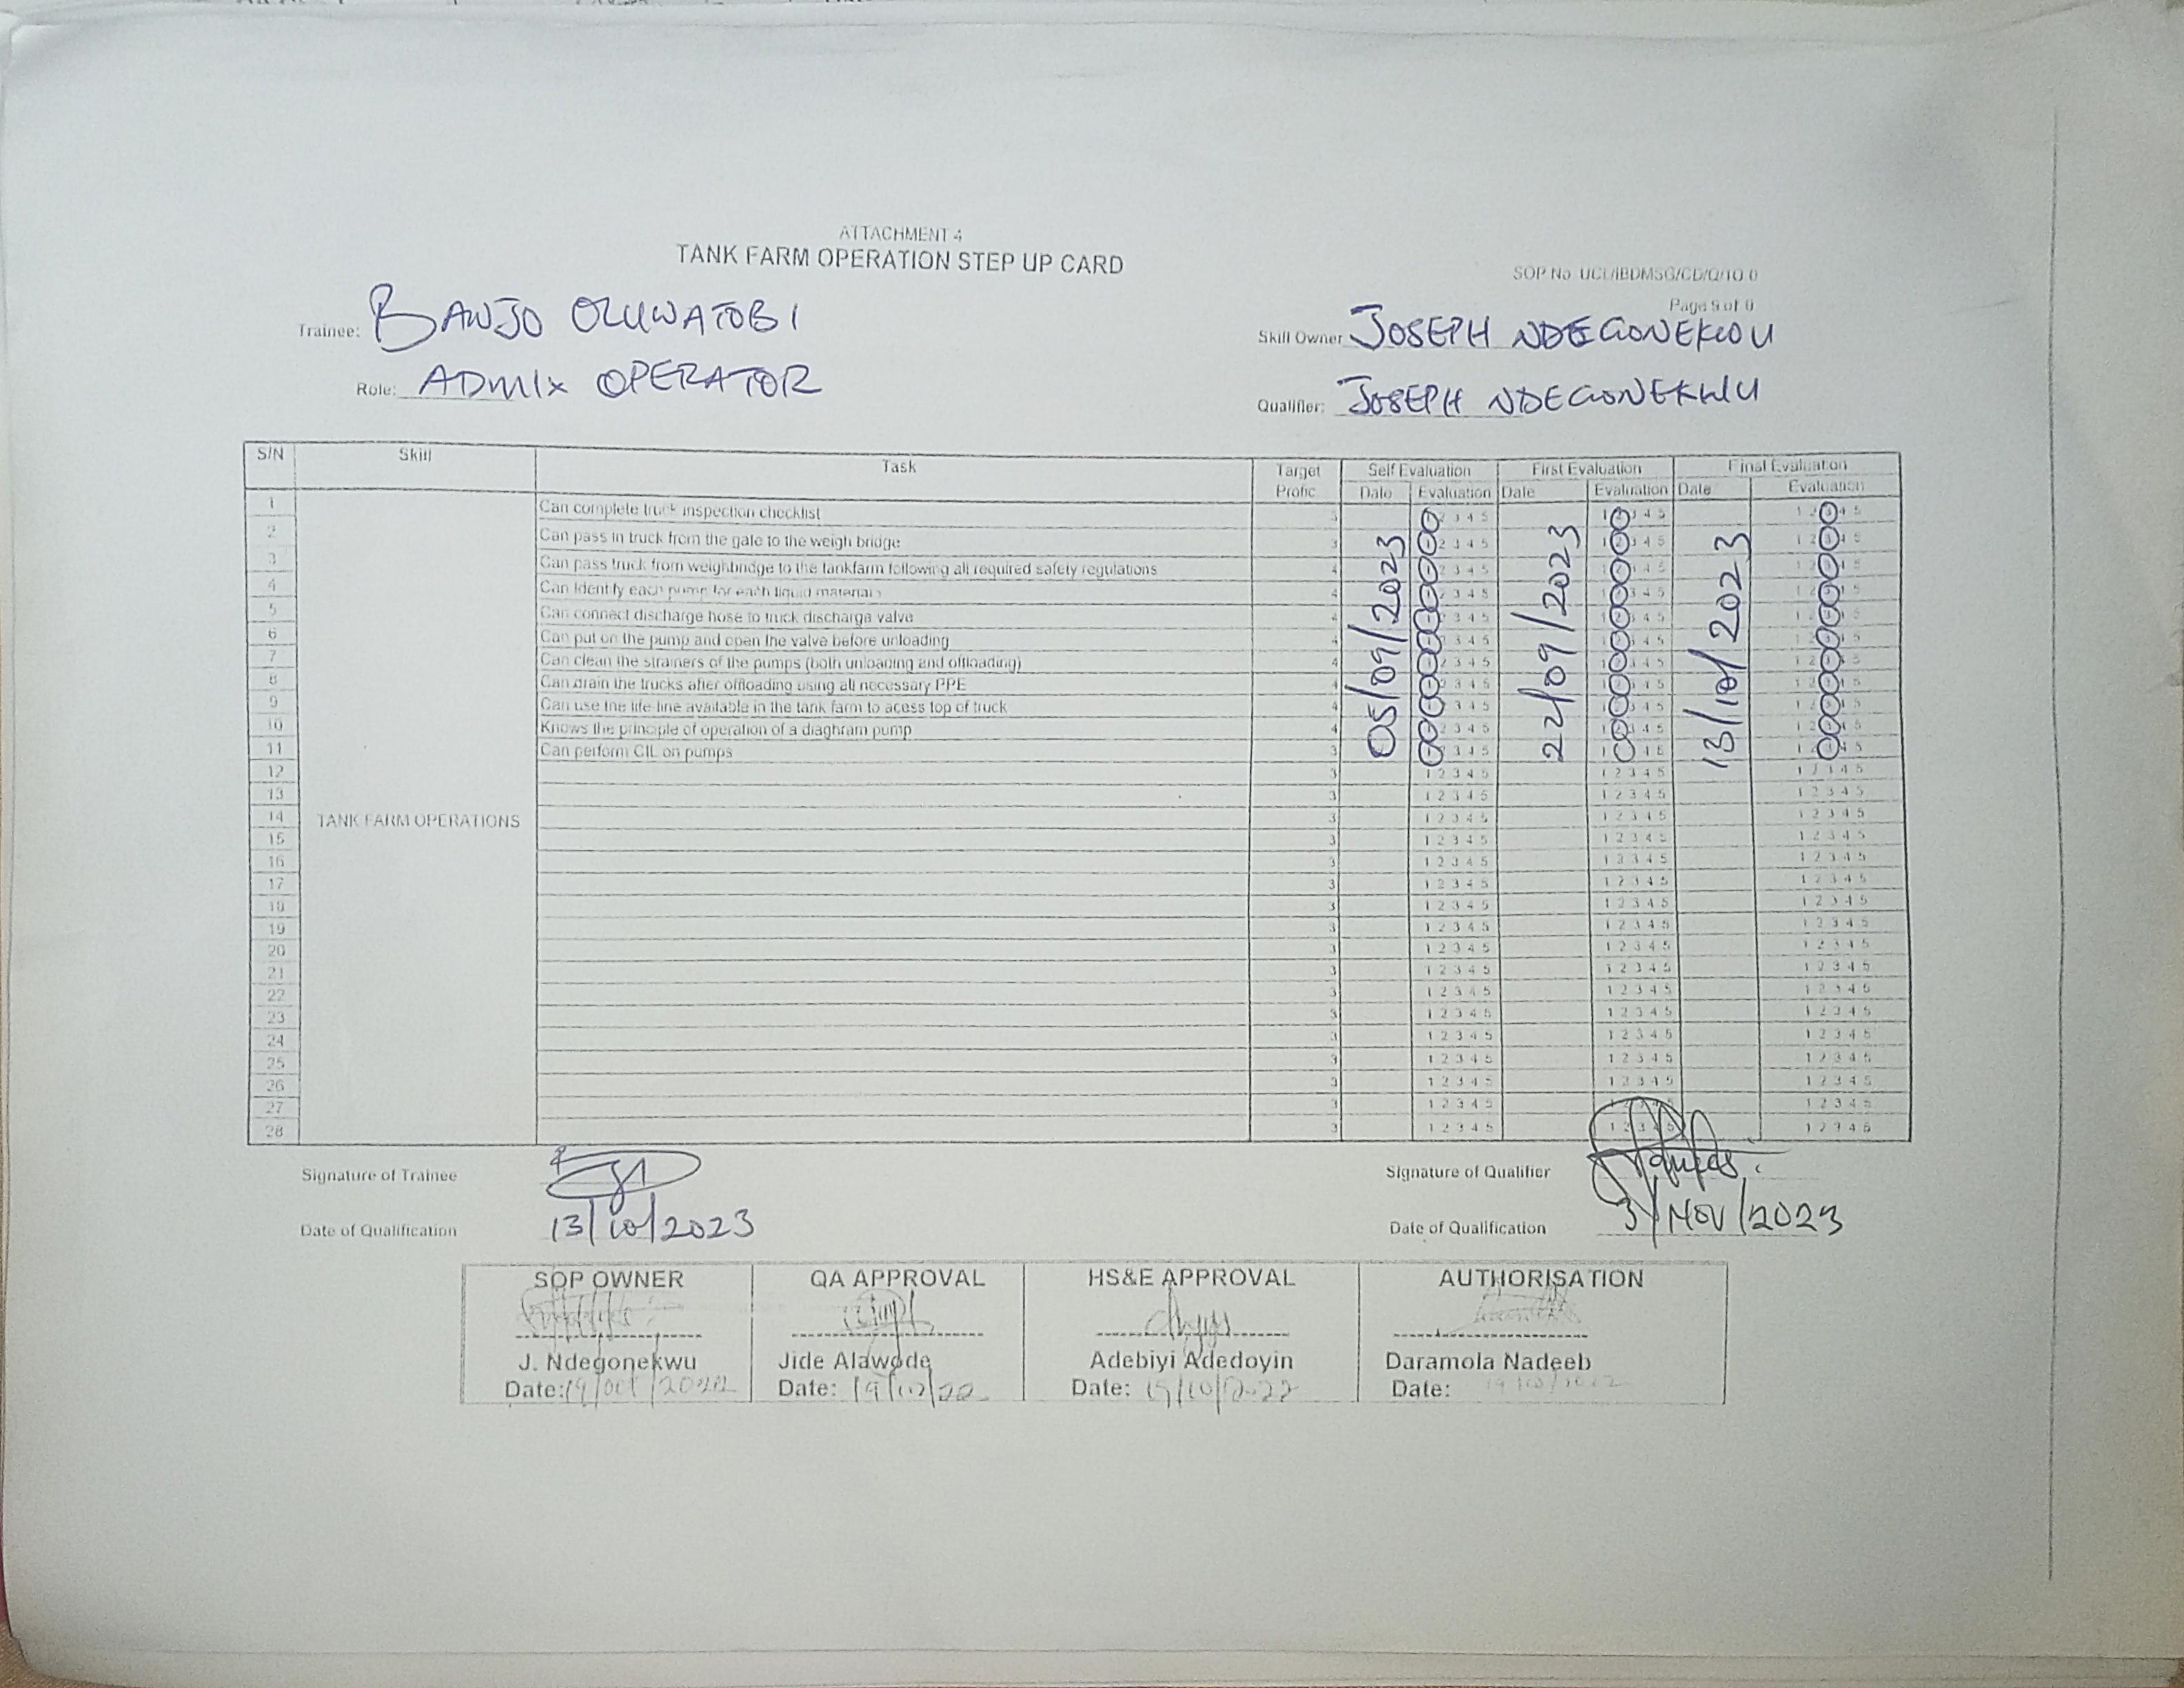 ATTACHMENT 4
TANK FARM OPERATION STEP UP CARD
SOP No. UCL/IBDMSG/CD/Q/10.0
Page 9 of 9
Trainee: BANJO OLUWATOBI
Skill Owner JOSEPH NDEGONEKWU
Role: ADMIX OPERATOR
Qualifier: JOSEPH NDEGONEKWU
S/N Skill Task Target Profic Self Evaluation First Evaluation Final Evaluation
Date Evaluation Date Evaluation Date Evaluation
TANK FARM OPERATIONS
05/09/2023 22/09/2023 13/10/2023
1 Can complete truck inspection checklist 3 2 3 4 5 1 3 4 5 1 2 4 5
2 Can pass in truck from the gate to the weigh bridge 3 2 3 4 5 1 3 4 5 1 2 4 5
3 Can pass truck from weighbridge to the tankfarm following all required safety regulations 4 2 3 4 5 1 3 4 5 1 2 4 5
4 Can identify each pump for each liquid materials 4 2 3 4 5 1 3 4 5 1 2 4 5
5 Can connect discharge hose to truck discharge valve 4 2 3 4 5 1 3 4 5 1 2 4 5
6 Can put on the pump and open the valve before unloading 4 2 3 4 5 1 3 4 5 1 2 4 5
7 Can clean the strainers of the pumps (both unloading and offloading) 4 2 3 4 5 1 3 4 5 1 2 4 5
8 Can drain the trucks after offloading using all necessary PPE 4 2 3 4 5 1 3 4 5 1 2 4 5
9 Can use the life line available in the tank farm to acess top of truck 4 2 3 4 5 1 3 4 5 1 2 4 5
10 Knows the principle of operation of a diaghram pump 4 2 3 4 5 1 3 4 5 1 2 4 5
11 Can perform CIL on pumps 3 2 3 4 5 1 3 4 5 1 2 4 5
12 3 1 2 3 4 5 1 2 3 4 5 1 2 3 4 5
13 3 1 2 3 4 5 1 2 3 4 5 1 2 3 4 5
14 3 1 2 3 4 5 1 2 3 4 5 1 2 3 4 5
15 3 1 2 3 4 5 1 2 3 4 5 1 2 3 4 5
16 3 1 2 3 4 5 1 2 3 4 5 1 2 3 4 5
17 3 1 2 3 4 5 1 2 3 4 5 1 2 3 4 5
18 3 1 2 3 4 5 1 2 3 4 5 1 2 3 4 5
19 3 1 2 3 4 5 1 2 3 4 5 1 2 3 4 5
20 3 1 2 3 4 5 1 2 3 4 5 1 2 3 4 5
21 3 1 2 3 4 5 1 2 3 4 5 1 2 3 4 5
22 3 1 2 3 4 5 1 2 3 4 5 1 2 3 4 5
23 3 1 2 3 4 5 1 2 3 4 5 1 2 3 4 5
24 3 1 2 3 4 5 1 2 3 4 5 1 2 3 4 5
25 3 1 2 3 4 5 1 2 3 4 5 1 2 3 4 5
26 3 1 2 3 4 5 1 2 3 4 5 1 2 3 4 5
27 3 1 2 3 4 5 1 2 3 4 5 1 2 3 4 5
28 3 1 2 3 4 5 1 2 3 4 5 1 2 3 4 5
Signature of Trainee
Signature of Qualifier
Date of Qualification 13/10/2023
Date of Qualification 3/NOV/2023
SOP OWNER QA APPROVAL HS&E APPROVAL AUTHORISATION
J. Ndegonekwu Jide Alawode Adebiyi Adedoyin Daramola Nadeeb
Date: 19/Oct/2022 Date: 19/10/22 Date: 19/10/2022 Date: 19/10/2022